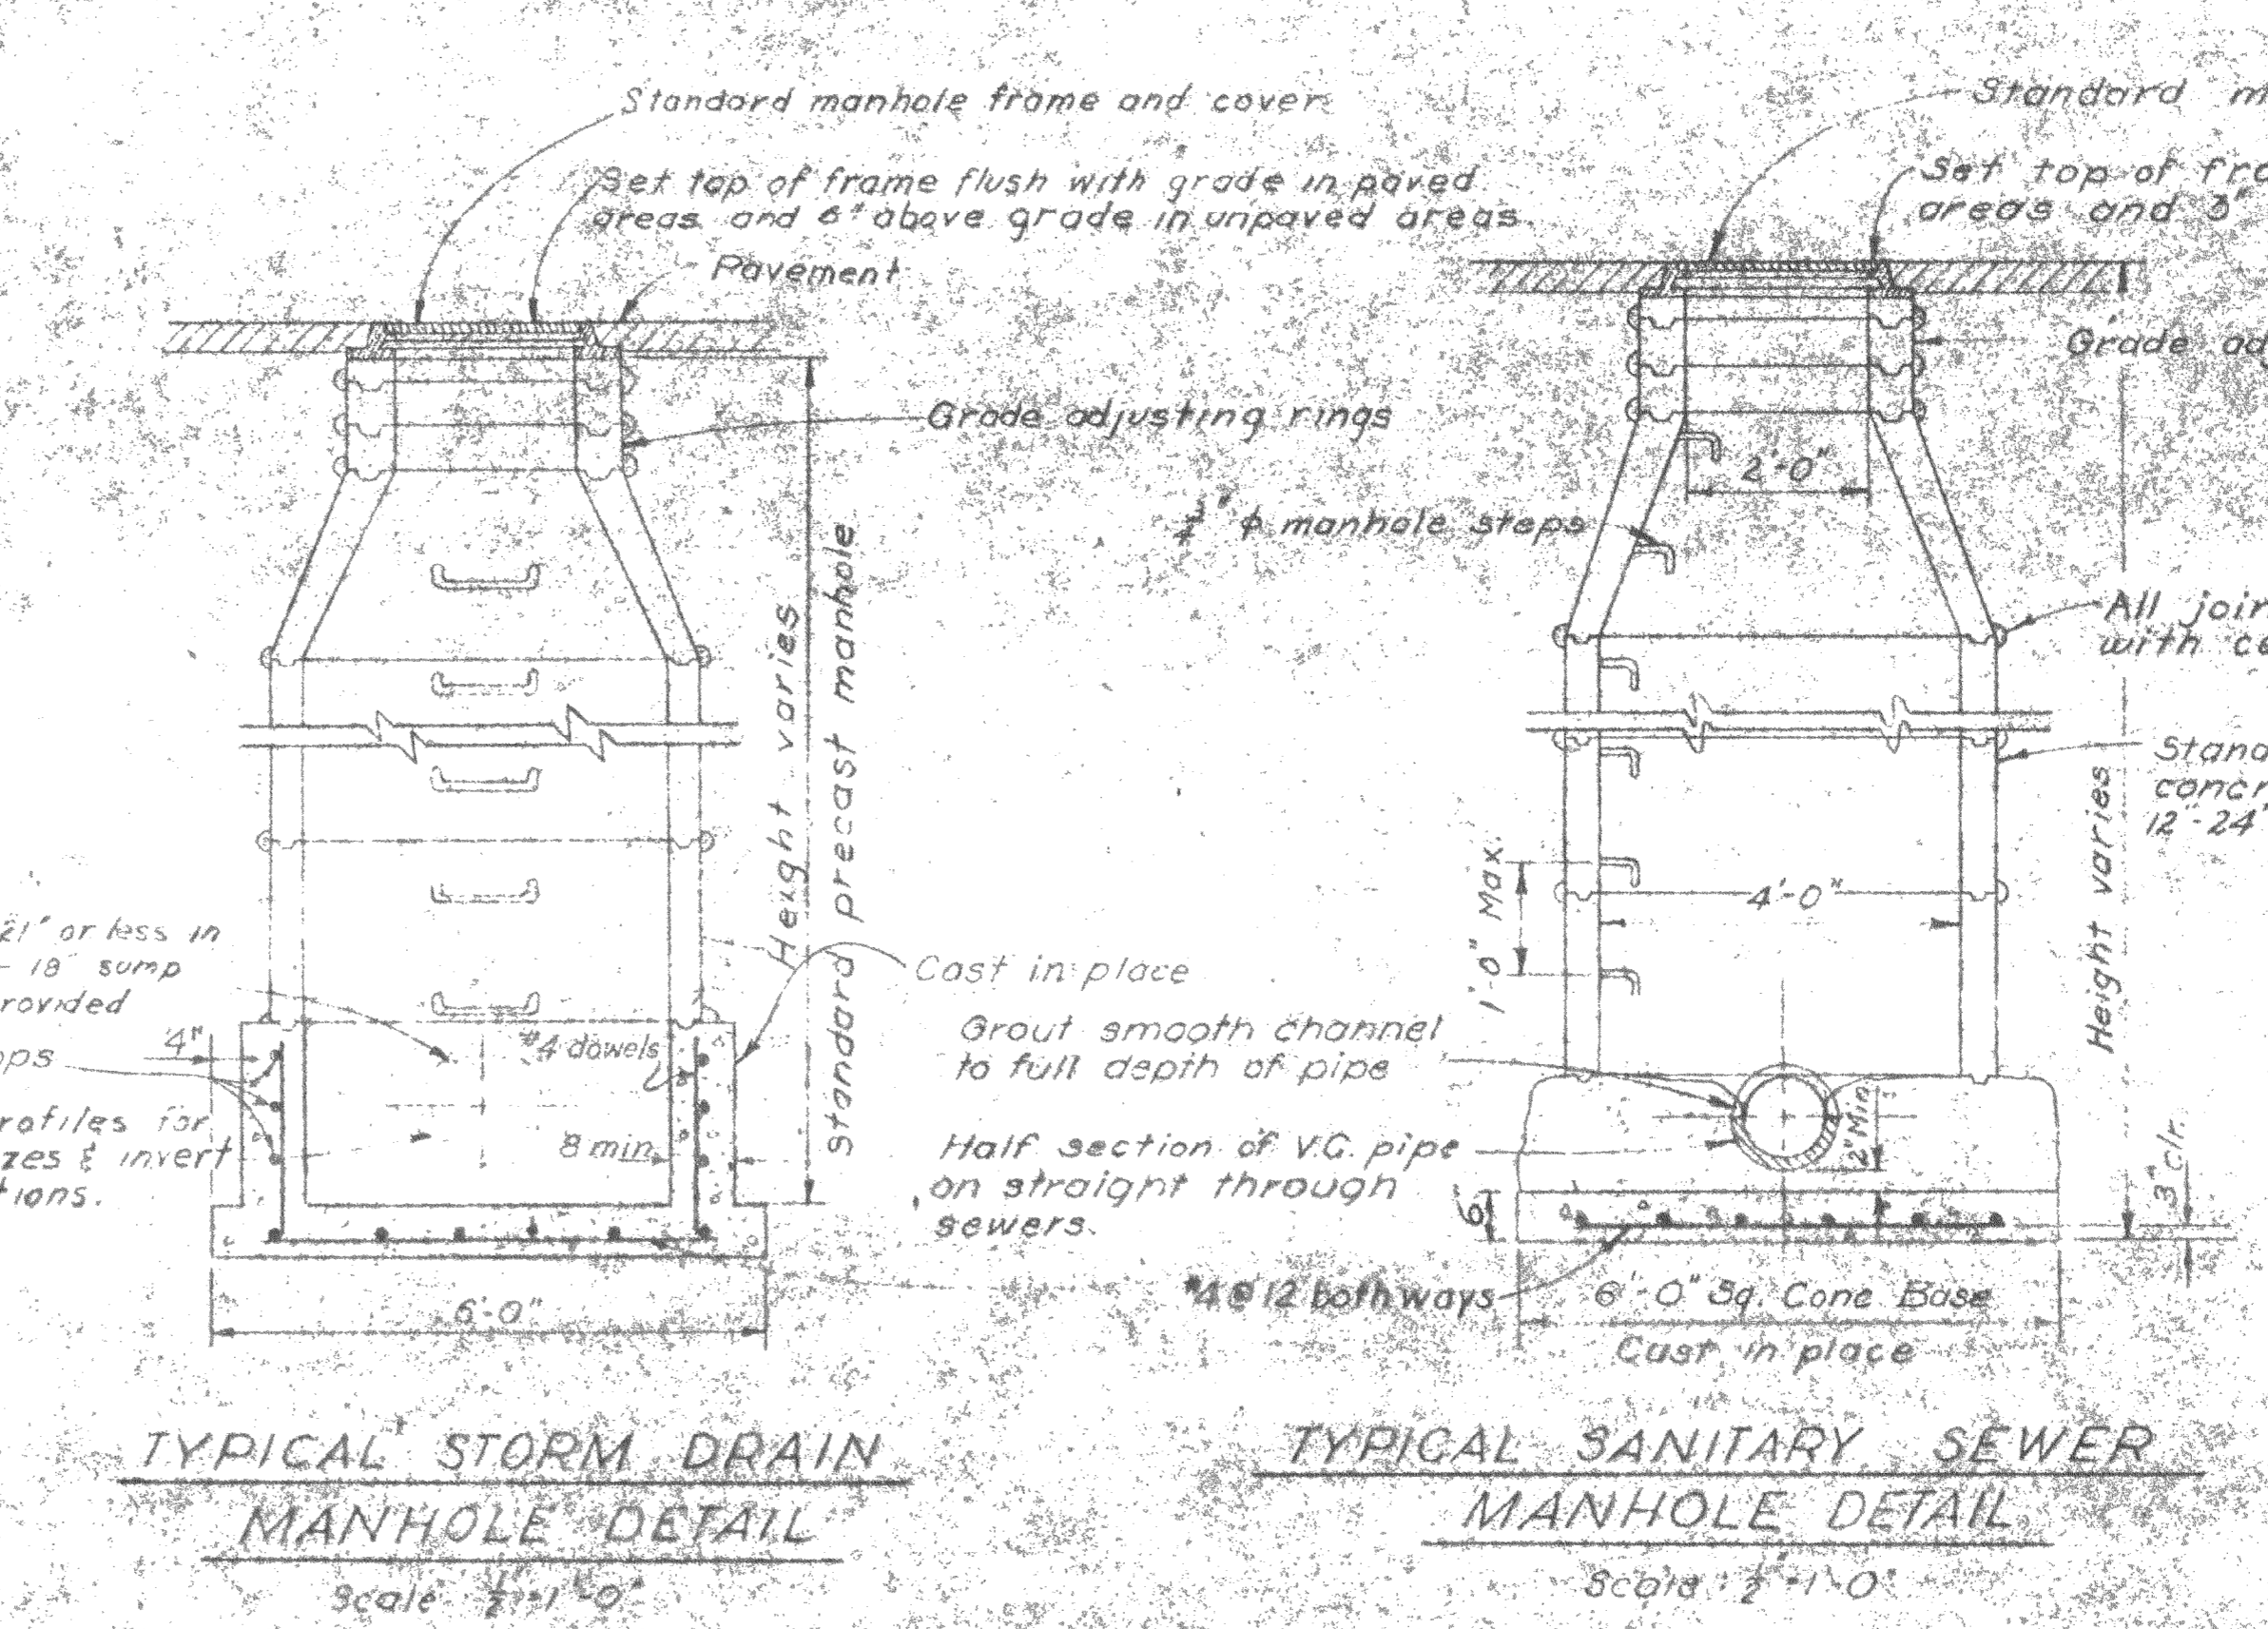 Standard manhole frame and cover
Set top of frame flush with grade in paved
areas and 6" above grade in unpaved areas.
Pavement
Grade adjusting rings
Height varies
standard precast manhole
21" or less in
- 18" sump
rovided
4"
ops
#4 dowels
Cast in place
rofiles for
zes & invert
tions.
8 min.
6'-0"
TYPICAL STORM DRAIN
MANHOLE DETAIL
Scale ½"=1'-0"
Standard m
Set top of fra
areas and 3"
Grade ad
2'-0"
¾" ϕ manhole steps
All join
with ce
Stand
concr
12"-24"
1'-0" Max.
4'-0"
Height varies
Grout smooth channel
to full depth of pipe
Half section of V.G. pipe
on straight through
sewers.
2" Min
6"
3" clr.
#4@12 both ways
6'-0" Sq. Conc Base
Cast in place
TYPICAL SANITARY SEWER
MANHOLE DETAIL
Scale : ½"=1'-0"